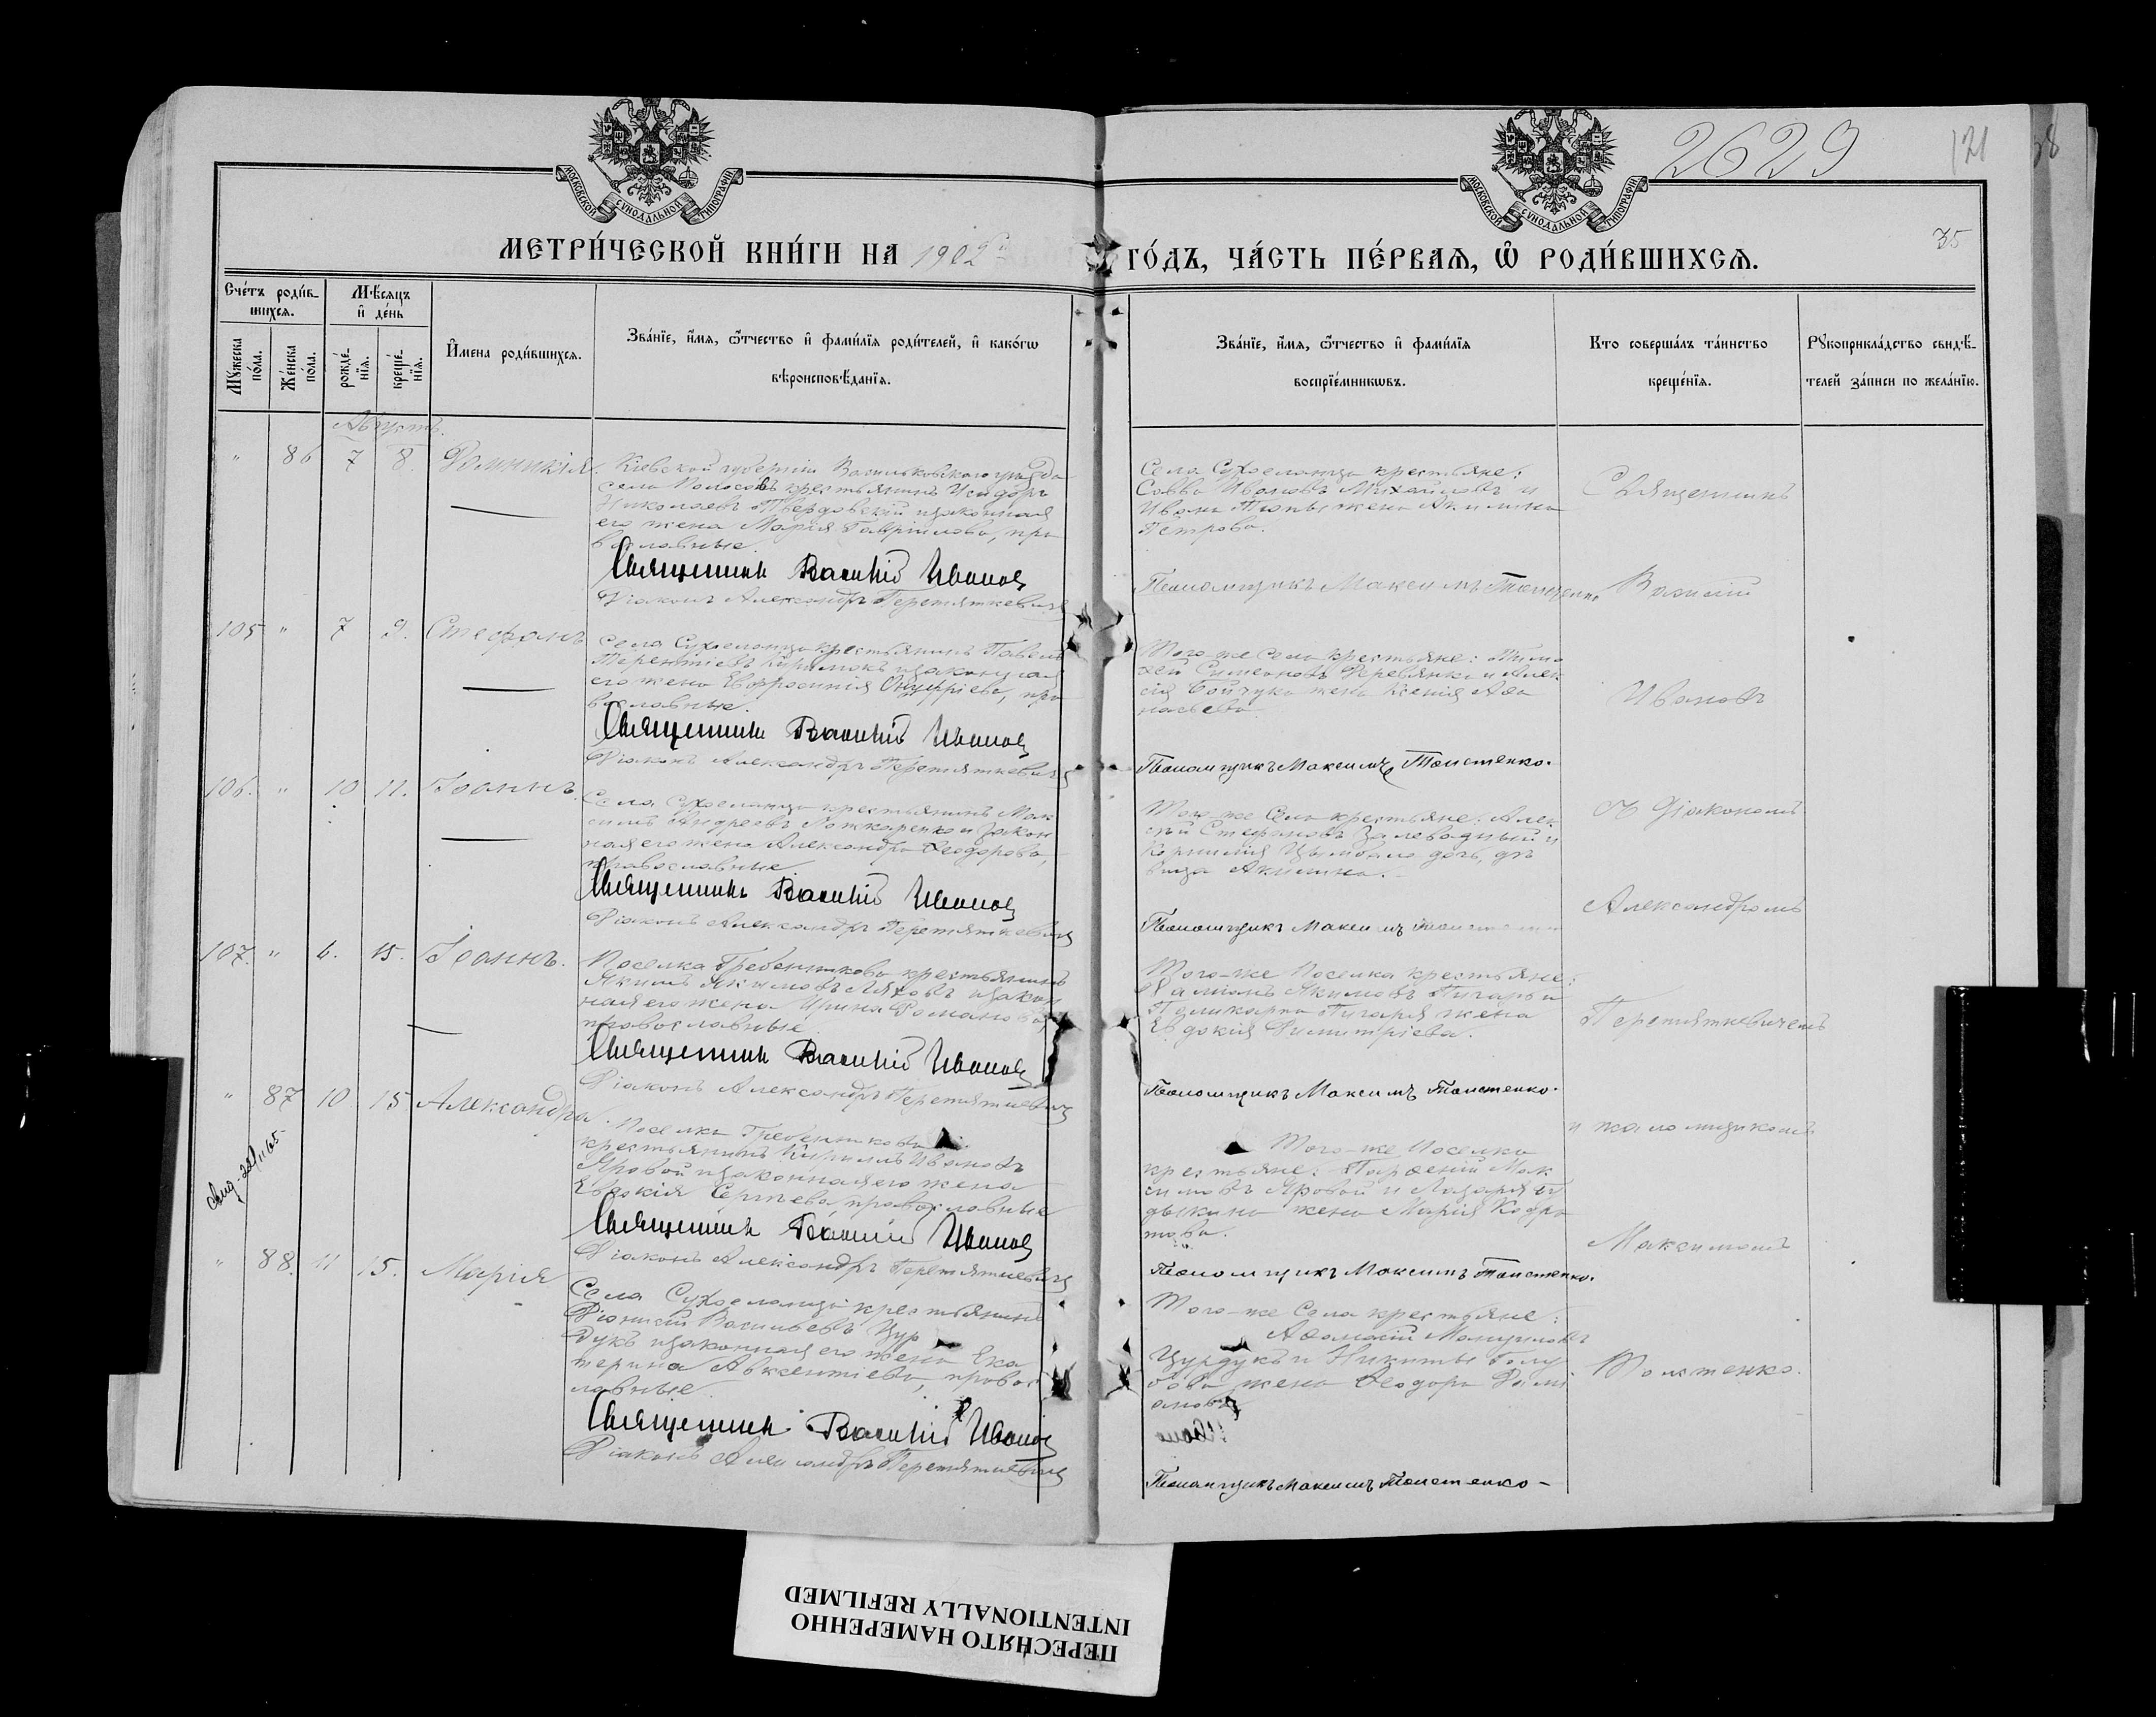 МОСКОВСКОЙ СѴНОДАЛЬНОЙ ТИПОГРАФІИ
МОСКОВСКОЙ СѴНОДАЛЬНОЙ ТИПОГРАФІИ
2629
121
38
35
МЕТРИ́ЧЕСКОЙ КНИ́ГИ НА 1902 ГО́ДЪ, ЧА́СТЬ ПЕ́РВАѦ, Ѡ҆ РОДИ́ВШИХСѦ.
Сче́тъ роди́в-
шихсѧ.
Мꙋжеска по́ла.
Же́нска по́ла.
Мѣ́сѧцъ
и҆ де́нь
рожде́-
нїѧ.
креще́-
нїѧ.
И҆мена роди́вшихсѧ.
Зва́нїе, и҆́мѧ, ѻ҆́тчество и҆ фами́лїѧ роди́телей, и҆ како́гѡ
вѣроисповѣ́данїѧ.
Зва́нїе, и҆́мѧ, ѻ҆́тчество и҆ фами́лїѧ
воспрїе́мникѡвъ.
Кто соверша́лъ та́инство
креще́нїѧ.
Рꙋкоприкла́дство свидѣ́-
телей за́писи по жела́нїю.
Августъ.
" 86 7 8. Домникія.
Кіевской губерніи Васильковскаго уѣзда
села крестьянинъ Исидоръ
Николаевъ Твердовскій и законная
его жена Марія Гавріилова, пра
вославные.
Священникъ Василій Ивановъ
Діаконъ Александръ Перетяткевичъ
Села Сухоеланца крестьяне:
Савва Ивановъ Михайловъ и
Ивана жена Акилина
Петрова.
Псаломщикъ Максимъ Толстенко
Священникъ
Василій
105 " 7 9. Стефанъ
Села Сухоеланца крестьянинъ Павелъ
Терентіевъ и законная
его жена Евфросинія Онуфріева, пра
вославные.
Священникъ Василій Ивановъ
Діаконъ Александръ Перетяткевичъ
Того-же села крестьяне: Тимо
ѳей Симеоновъ Деревянко и Алек
сія Бойчука жена Ксенія Аѳа
насьева.
Псаломщикъ Максимъ Толстенко.
Ивановъ
106. " 10 11. Іоаннъ.
Села Сухоеланца крестьянинъ Мак
симъ Андреевъ и закон
ная его жена Александра Ѳеодорова,
православные
Священникъ Василій Ивановъ
Діаконъ Александръ Перетяткевичъ
Того-же Села крестьяне: Алек
сѣй Стефановъ Залеводный и
Корнилія Цымбала дочь, дѣ
вица Акилина.
Псаломщикъ Максимъ Толстенко
съ Діакономъ
Александромъ
107. " 6. 15. Іоаннъ.
Поселка Гребенникова крестьянинъ
Якимъ Якимовъ Ляховъ и закон
ная его жена Ирина Романова,
православные.
Священникъ Василій Ивановъ
Діаконъ Александръ Перетяткевичъ
Того-же поселка крестьяне:
Якимовъ и
Поликарпа жена
Евдокія Димитріева.
Псаломщикъ Максимъ Толстенко.
Перетяткевичемъ
" 87 10 15 Александра.
Поселка Гребенникова
крестьянинъ Кириллъ Ивановъ
Яровой и законная его жена
Евдокія Сергѣева, православные
Священникъ Василій Ивановъ
Діаконъ Александръ Перетяткевичъ
Того-же поселка
крестьяне: Парѳеній Мак
симовъ Яровой и Лазаря
жена Марія Кодра
това.
Псаломщикъ Максимъ Толстенко.
и псаломщикомъ
Максимомъ
" 88. 11 15. Марія
Села Сухоеланца крестьянинъ
Діонисій Васильевъ Цур
дукъ и законная его жена Ека
терина Авксентіева, правос
лавные.
Священникъ Василій Ивановъ
Діаконъ Александръ Перетяткевичъ
Того-же Села крестьяне:
Аѳанасій
Цурдукъ и Никиты Голу
бова жена Ѳеодора
Псаломщикъ Максимъ Толстенко
Толстенко.
ПЕРЕСНЯТО НАМЕРЕННО
INTENTIONALLY REFILMED